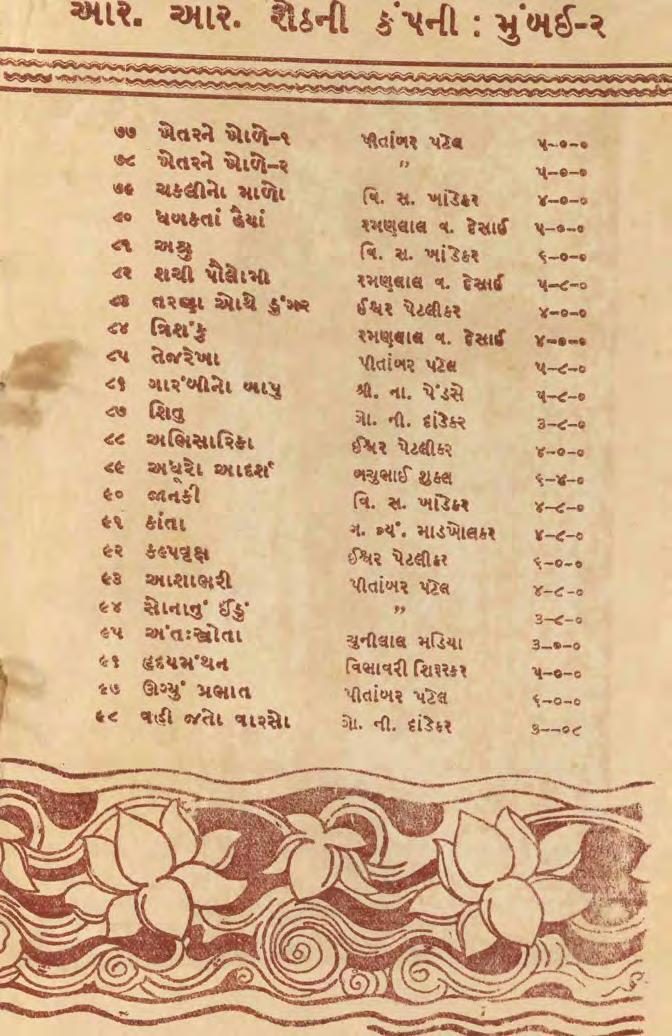 આર. આર. શેઠની કંપની : મુંબઈ-૨
૭૭ ખેતરને ખોળે-૧ પીતાંબર પટેલ ૫-૦-૦
૭૮ ખેતરને ખોળે-૨ ” ૫-૦-૦
૭૯ ચકલીનો માળો વિ. સ. ખાંડેકર ૪-૦-૦
૮૦ ધબકતાં હૈયાં રમણલાલ વ. દેસાઈ ૫-૦-૦
૮૧ અશ્રુ વિ. સ. ખાંડેકર ૬-૦-૦
૮૨ શચી પૌલોમી રમણલાલ વ. દેસાઈ ૫-૮-૦
૮૩ તરણા ઓથે ડુંગર ઈશ્વર પેટલીકર ૪-૦-૦
૮૪ ત્રિશંકુ રમણલાલ વ. દેસાઈ ૪-૦-૦
૮૫ તેજરેખા પીતાંબર પટેલ ૫-૮-૦
૮૬ ગારંબીનો બાપુ શ્રી. ના. પેંડસે ૫-૮-૦
૮૭ શિતુ ગો. ની. દાંડેકર ૩-૮-૦
૮૮ અભિસારિકા ઈશ્વર પેટલીકર ૪-૦-૦
૮૯ અધૂરો આદર્શ બચુભાઈ શુક્લ ૬-૪-૦
૯૦ જાનકી વિ. સ. ખાંડેકર ૪-૮-૦
૯૧ કાંતા ગ. ત્ર્યં. માડખોલકર ૪-૮-૦
૯૨ કલ્પવૃક્ષ ઈશ્વર પેટલીકર ૬-૦-૦
૯૩ આશાભરી પીતાંબર પટેલ ૪-૮-૦
૯૪ સોનાનું ઈંડું ” ૩-૮-૦
૯૫ અંતઃસ્રોતા ચુનીલાલ મડિયા ૩-૦-૦
૯૬ હૃદયમંથન વિભાવરી શિરૂરકર ૫-૦-૦
૯૭ ઊગ્યું પ્રભાત પીતાંબર પટેલ ૬-૦-૦
૯૮ વહી જતો વારસો ગો. ની. દાંડેકર ૩--૦૮